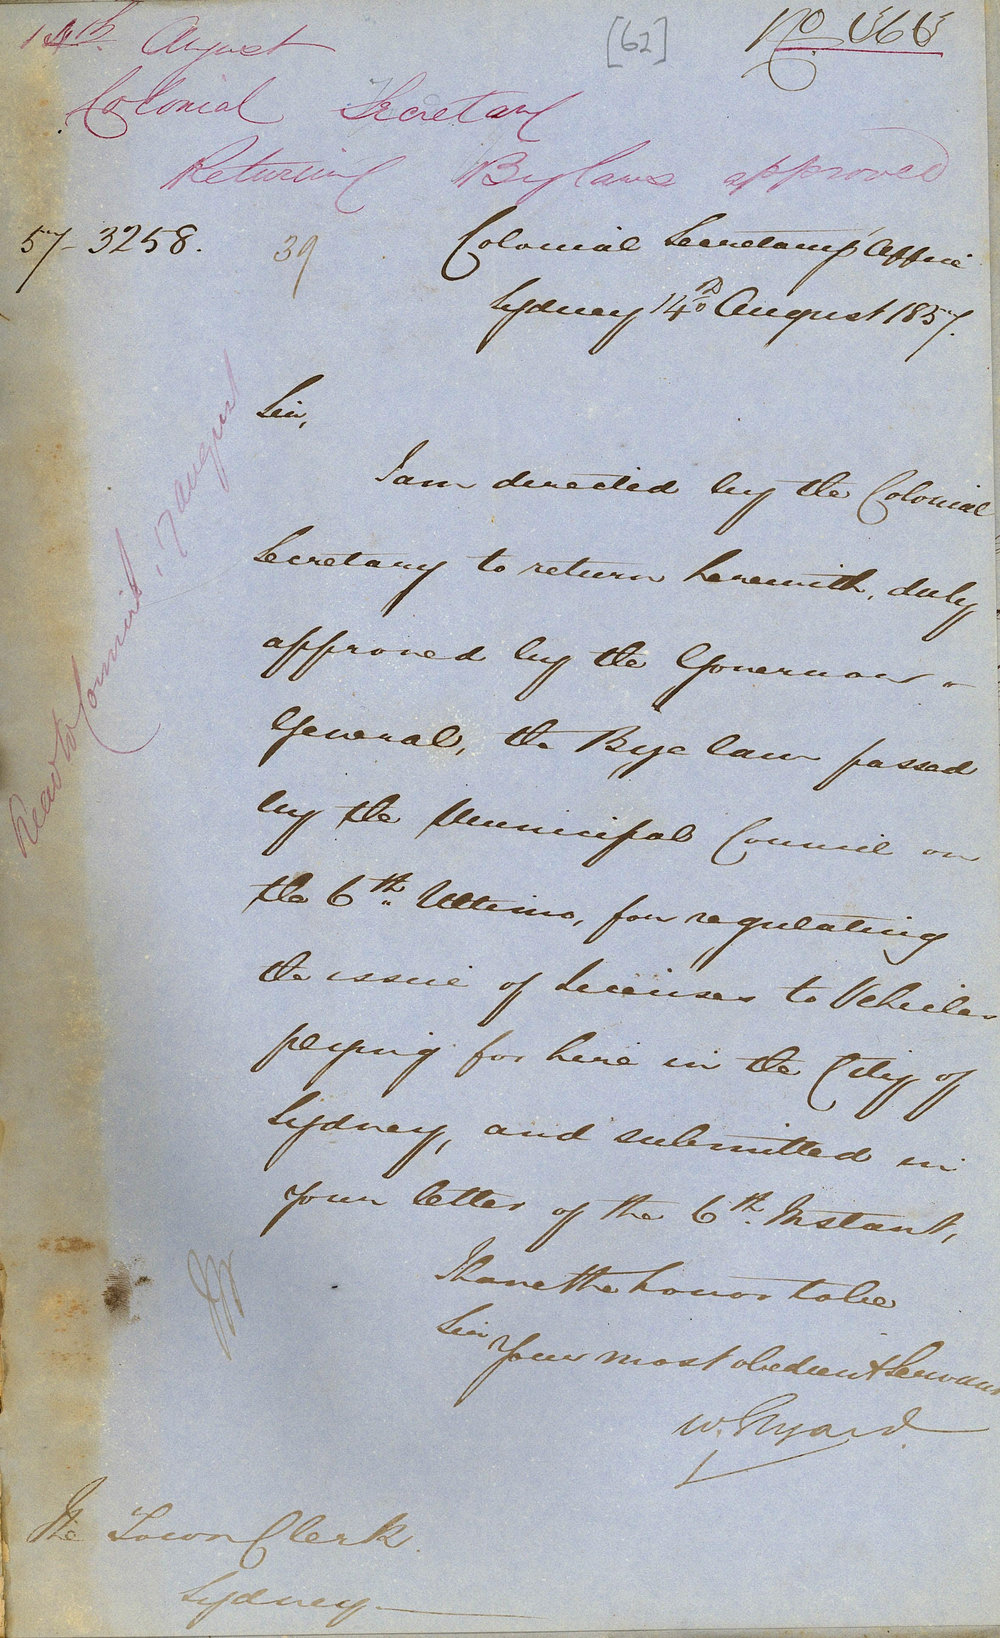 14th August
[62]
No. 666
Colonial Secretary
Returning Bylaws approved
57-3258.
39
Colonial Secretary's Office
Sydney 14th August 1857.
Sir,
I am directed by the Colonial
Secretary to return herewith, duly
approved by the Governor-
General, the Bye law passed
by the Municipal Council on
the 6th Ultimo, for regulating
the issue of Licenses to Vehicles
plying for hire in the City of
Sydney, and submitted in
your letter of the 6th Instant,
I have the honor to be
Sir
Your most obedient Servant
W. Elyard
The Town Clerk
Sydney
17 August